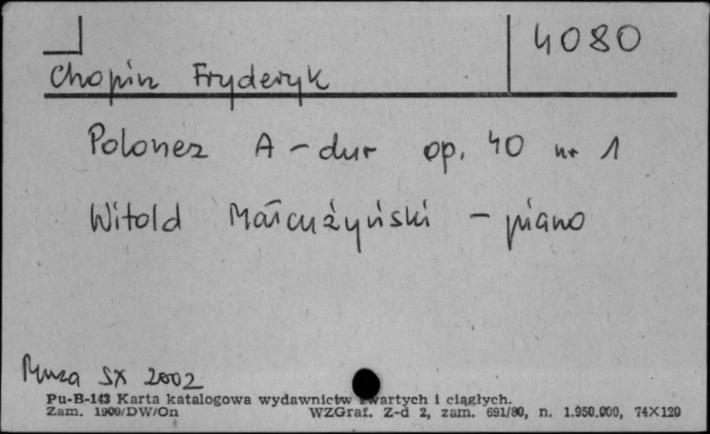 4080
Chopin Fryderyk
Polonez A-dur op. 40 nr 1
Witold Małcużyński - piano
Muza SX 2002
Pu-B-143 Karta katalogowa wydawnictw zwartych i ciągłych.
Zam. 1909/DW/On WZGraf. Z-d 2, zam. 691/80, n. 1.950.000, 74×120